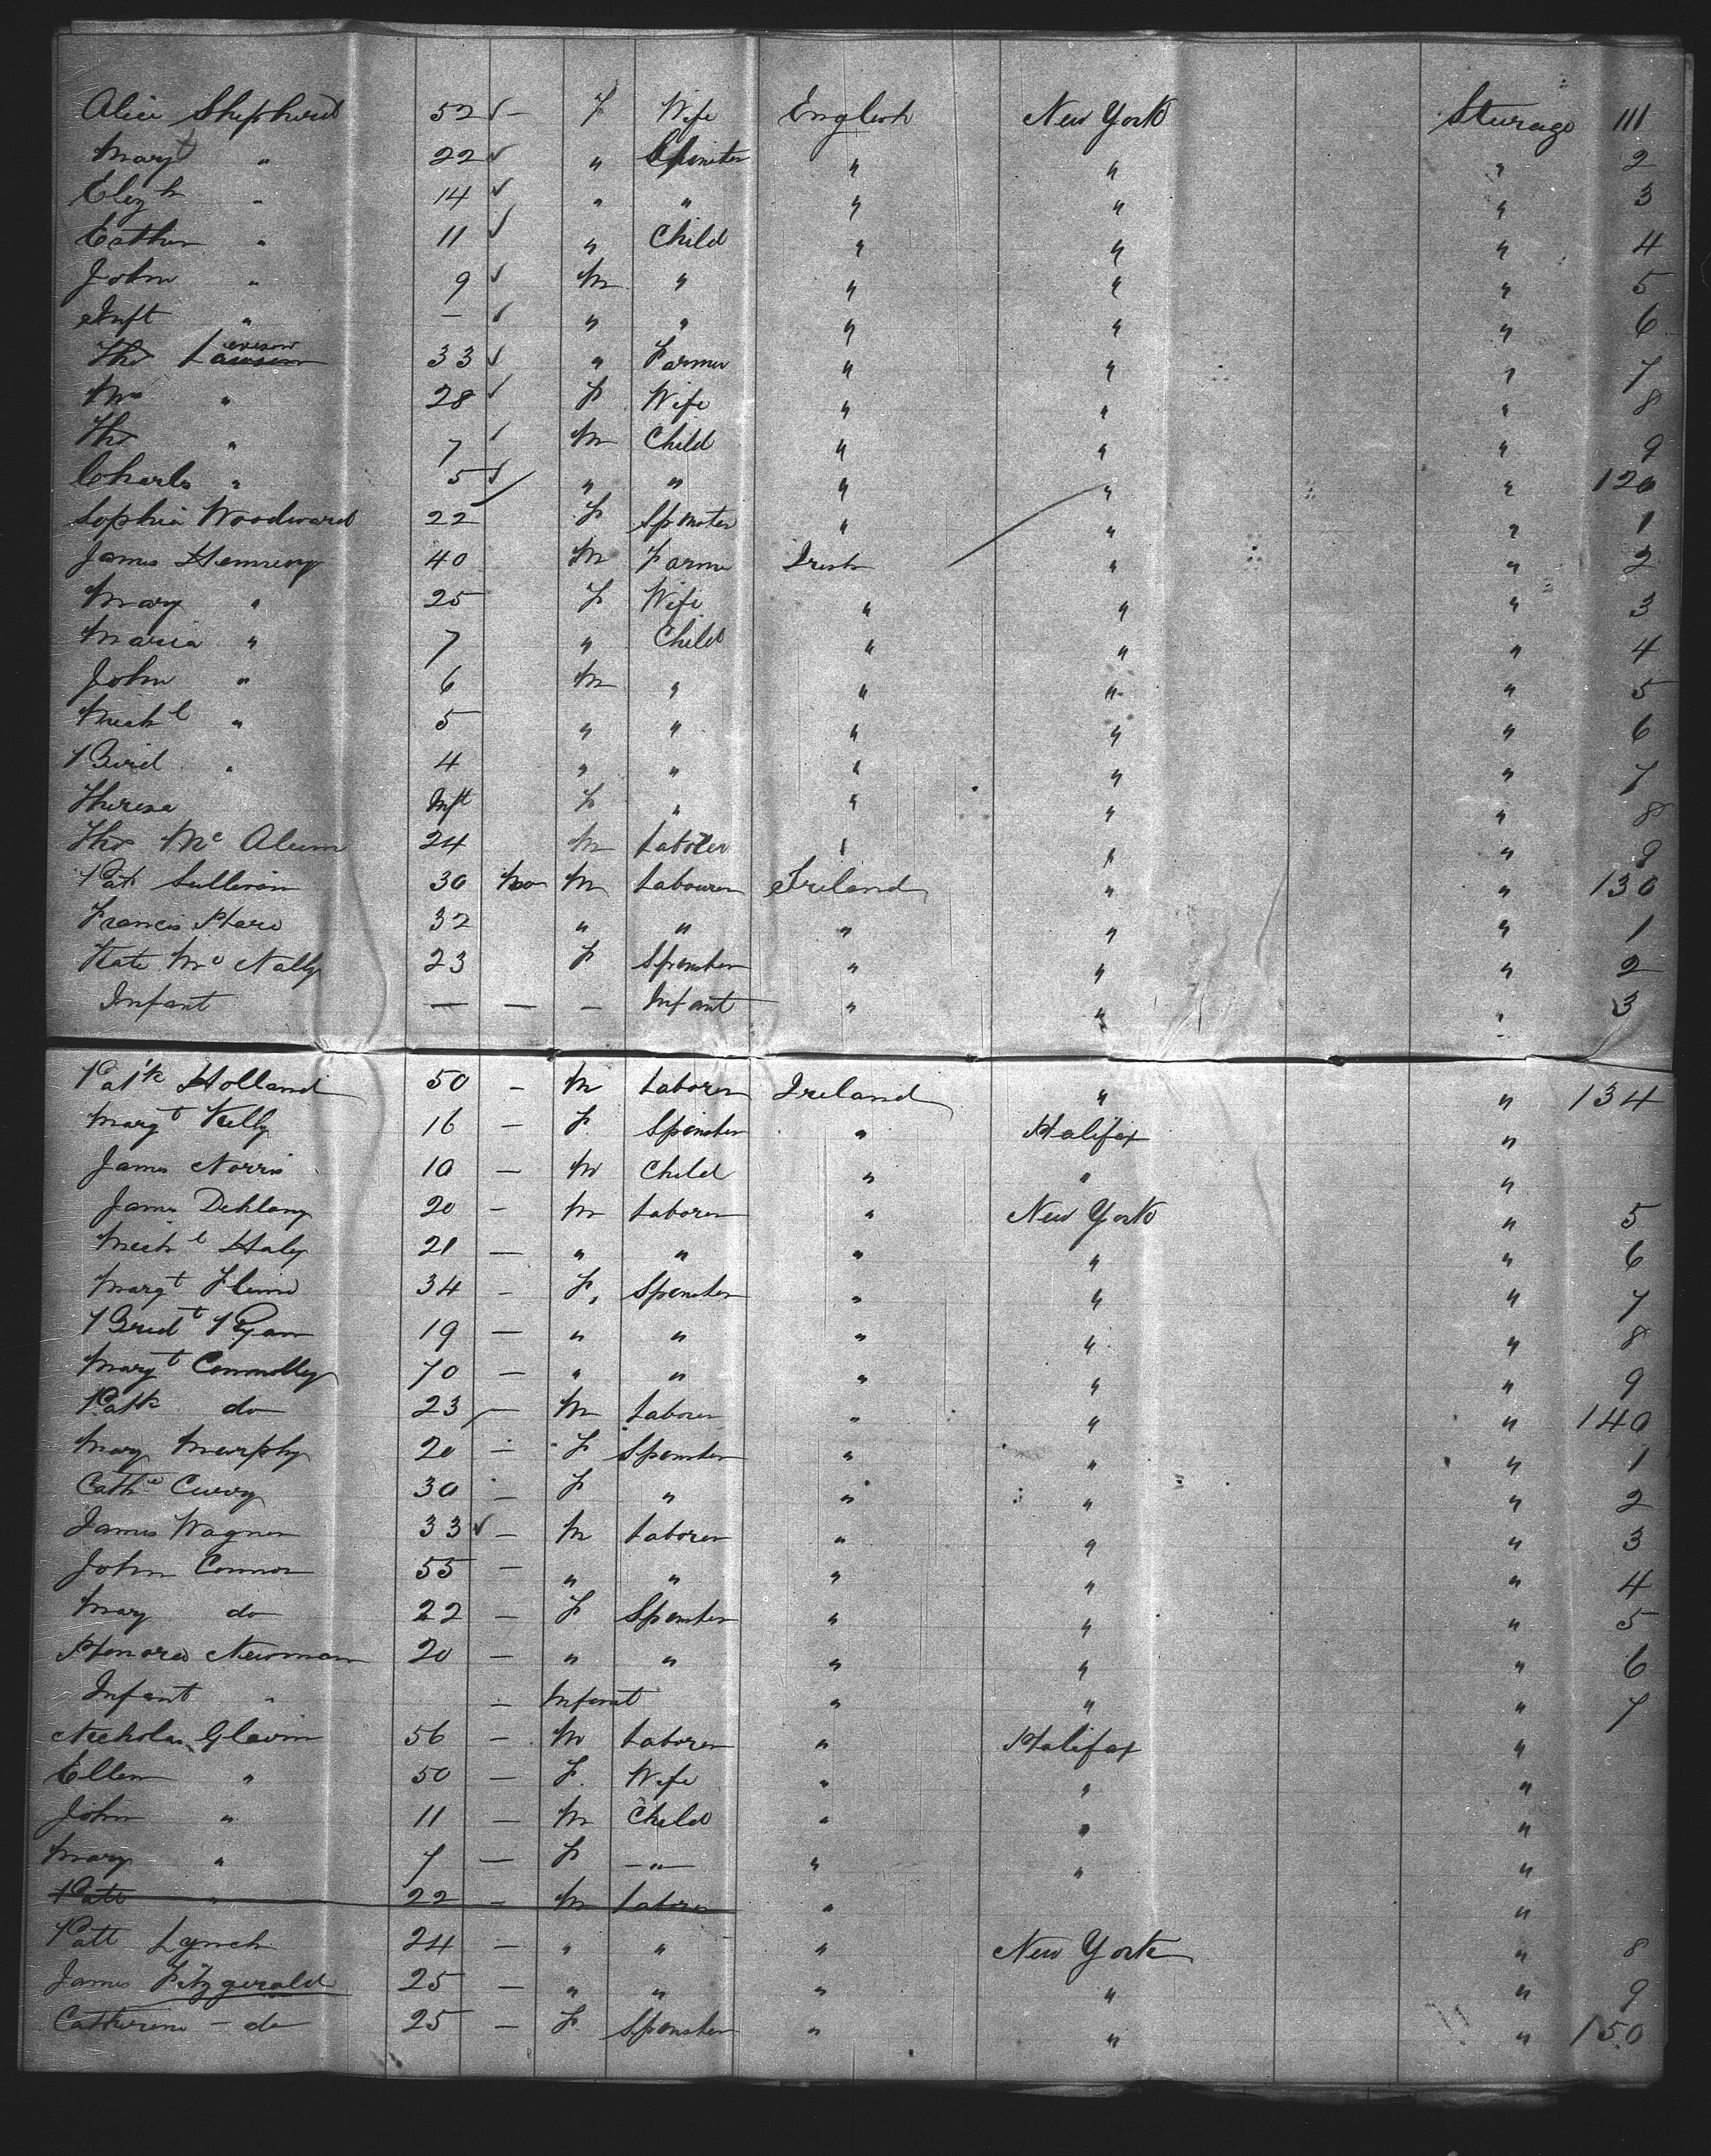 Alice Shepherd 52 ✓ – F Wife English New York Steerage 111
Margt " 22 ✓ " Spinster " " " 2
Elizh " 14 ✓ " " " " " 3
Esther " 11 ✓ " Child " " " 4
John " 9 ✓ M " " " " 5
Inft " – ✓ " " " " " 6
Thos Lawson eveson 33 ✓ " Farmer " " " 7
Mrs " 28 ✓ F Wife " " " 8
Thos " 7 ✓ M Child " " " 9
Charles " 5 ✓ " " " " " 120
Sophia Woodward 22 F Spinster " " " 1
James Hennery 40 M Farmer Irish " " 2
Mary " 25 F Wife " " " 3
Maria " 7 " Child " " " 4
John " 6 M " " " " 5
Michl " 5 " " " " " 6
Brid " 4 " " " " " 7
Theresa Inft F " " " " 8
Thos Mc Alum 24 M Laborer " " " 9
Pat Sullivan 30 M Labourer Ireland " " 130
Francis Hare 32 " " " " " 1
Kate Mc Nally 23 F Spinster " " " 2
Infant — — – Infant " " " 3
Patk Holland 50 – M Laborer Ireland " " 134
Margt Kelly 16 – F Spinster " Halifax "
James Norris 10 – M Child " " "
James Dehlany 20 – M Laborer " New York " 5
Michl Haly 21 – " " " " " 6
Margt Flinn 34 – F Spinster " " " 7
Bridt Ryan 19 – " " " " " 8
Margt Connolly 70 – " " " " " 9
Patk do 23 – M Laborer " " " 140
Mary Murphy 20 – F Spinster " " " 1
Cathe Curry 30 – F " " " " 2
James Wagner 33 ✓ – M Laborer " " " 3
John Connor 55 – " " " " " 4
Mary do 22 – F Spinster " " " 5
Honora Newman 20 – " " " " " 6
Infant " – Infant " " " 7
Nicholas Glavin 56 – M Laborer " Halifax "
Ellen " 50 – F. Wife " " "
John " 11 – M Child " " "
Mary " 7 – F –"– " " "
Patt " 22 – M Laborer " "
Patt Lynch 24 – " " " New York " 8
James Fitzgerald 25 – " " " " " 9
Catherine – do 25 – F. Spinster " " " 150